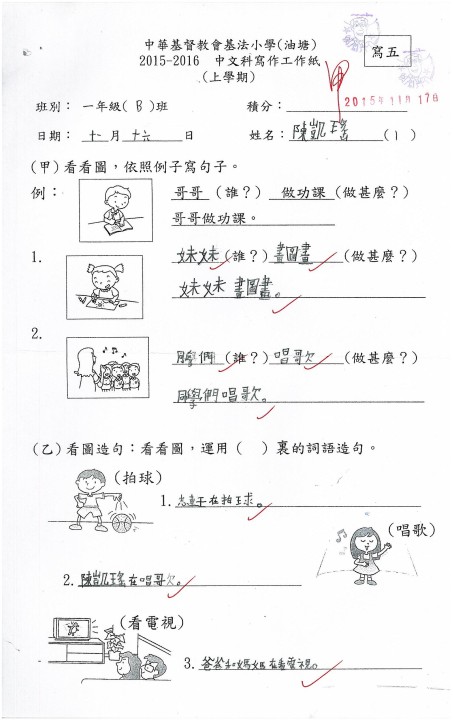 中華基督教會基法小學(油塘)
2015-2016 中文科寫作工作紙
(上學期)
寫五
甲
2015年11月17日
班別： 一年級( B )班 積分：
日期： 十一 月 十六 日 姓名： 陳凱瑤 ( 1 )
(甲)看看圖，依照例子寫句子。
例： 哥哥 (誰？) 做功課 (做甚麼？)
哥哥做功課。
1. 妹妹 (誰？) 畫圖畫 (做甚麼？)
妹妹 畫圖畫。
2. 同學們 (誰？) 唱歌 (做甚麼？)
同學們唱歌。
(乙)看圖造句：看看圖，運用（ ）裏的詞語造句。
(拍球)
1. 在拍球。
(唱歌)
2. 陳凱瑤在唱歌。
(看電視)
3. 爸爸和媽媽在看電視。